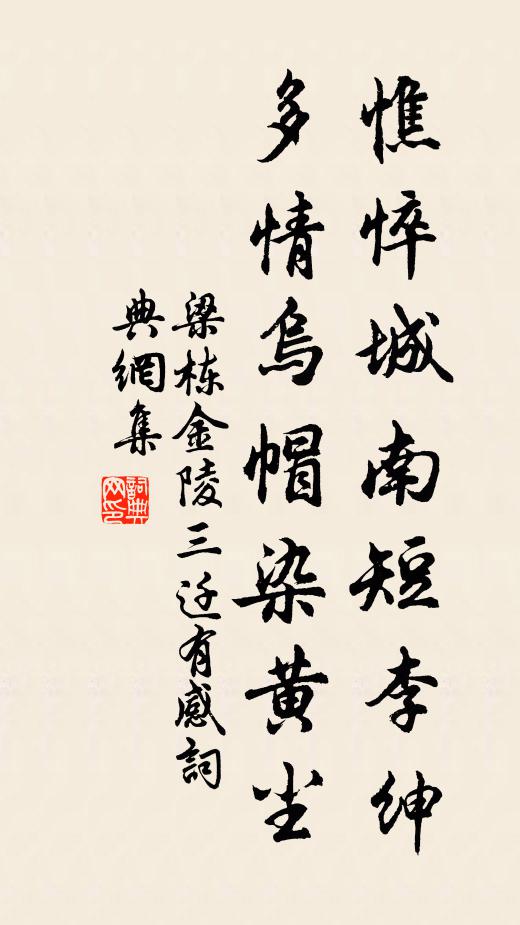 憔悴城南短李紳
多情烏帽染黄尘
梁栋金陵三迁有感詞
典網集
詞典网印